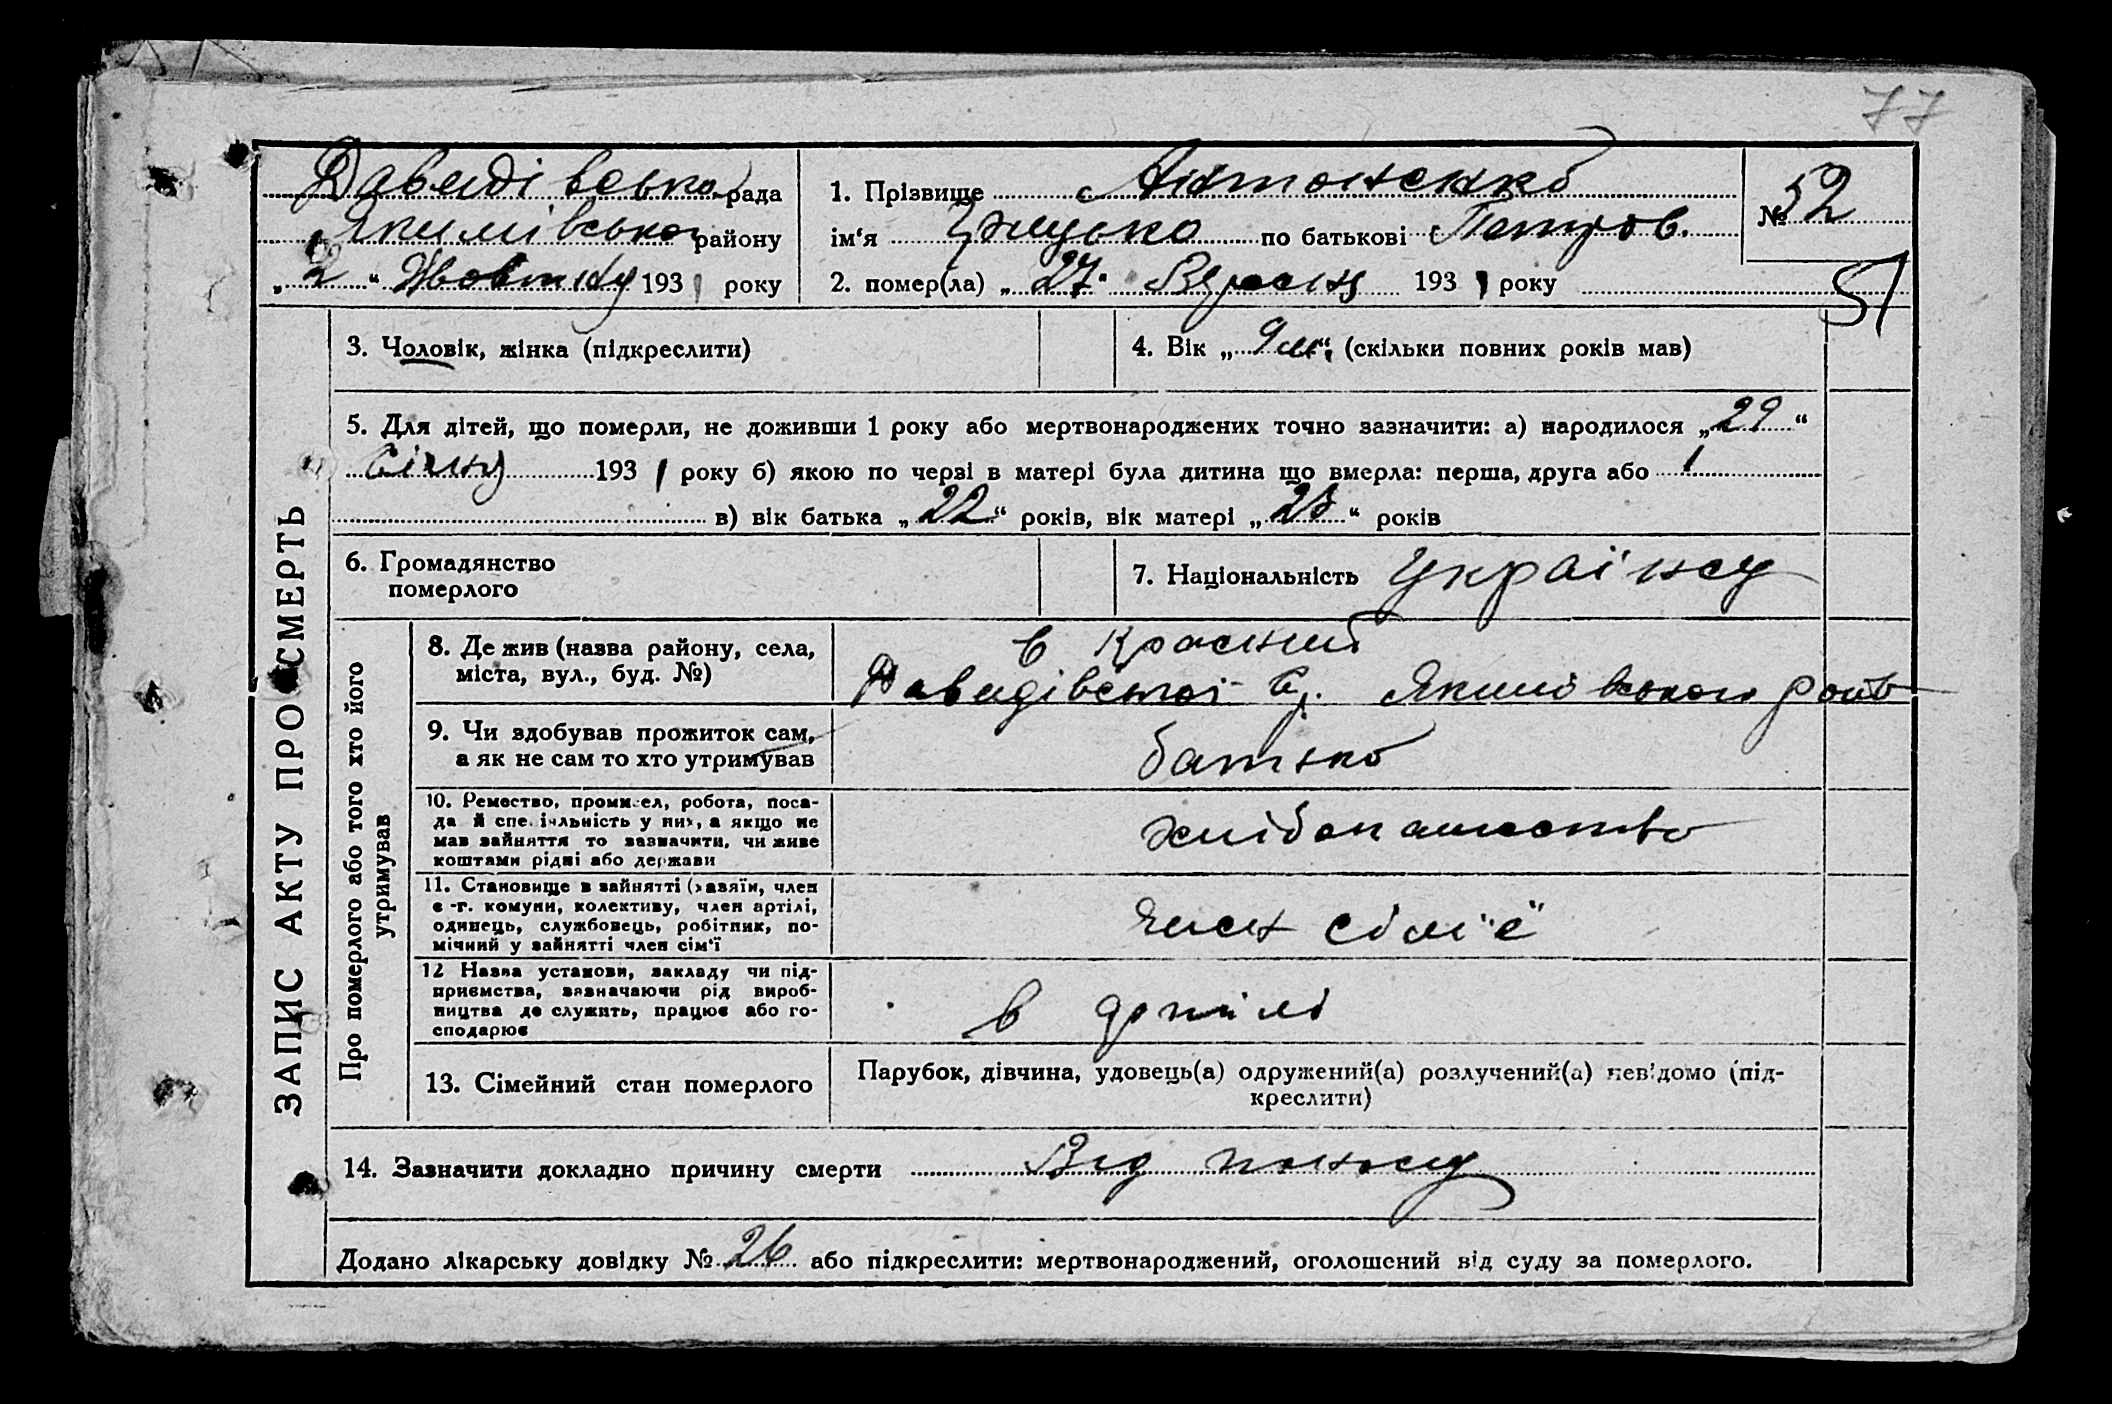 77
Давидівська рада
Якимівського району
„2“ Жовтня 1931 року
1. Прізвище Антоненко
ім'я Грицько по батькові Петров.
2. помер(ла) „27“ Вересня 1931 року
№ 52
51
3. Чоловік, жінка (підкреслити)
4. Вік „9 м.“ (скільки повних років мав)
5. Для дітей, що померли, не доживши 1 року або мертвонароджених точно зазначити: а) народилося „29“
Січня 1931 року б) якою по черзі в матері була дитина що вмерла: перша, друга або 1
в) вік батька „22“ років, вік матері „ “ років
6. Громадянство
померлого
7. Національність Українец
ЗАПИС АКТУ ПРО СМЕРТЬ
Про померлого або того хто його
утримував
8. Де жив (назва району, села,
міста, вул., буд. №)
в Красний
Давидівської с/р. Якимівського району
9. Чи здобував прожиток сам,
а як не сам то хто утримував
батько
10. Ремество, промисел, робота, поса-
да й спеціяльність у них, а якщо не
мав зайняття то зазначити, чи живе
коштами рідні або держави
хлібопашество
11. Становище в зайнятті (хазяїн, член
с.-г. комуни, колективу, член артілі,
одинець, службовець, робітник, по-
мічний у зайнятті член сім'ї
член сім'ї
12 Назва установи, закладу чи під-
приємства, зазначаючи рід вироб-
ництва де служить, працює або го-
сподарює
в артілі
13. Сімейний стан померлого
Парубок, дівчина, удовець(а) одружений(а) розлучений(а) невідомо (під-
креслити)
14. Зазначити докладно причину смерти Від поносу
Додано лікарську довідку № 26 або підкреслити: мертвонароджений, оголошений від суду за померлого.